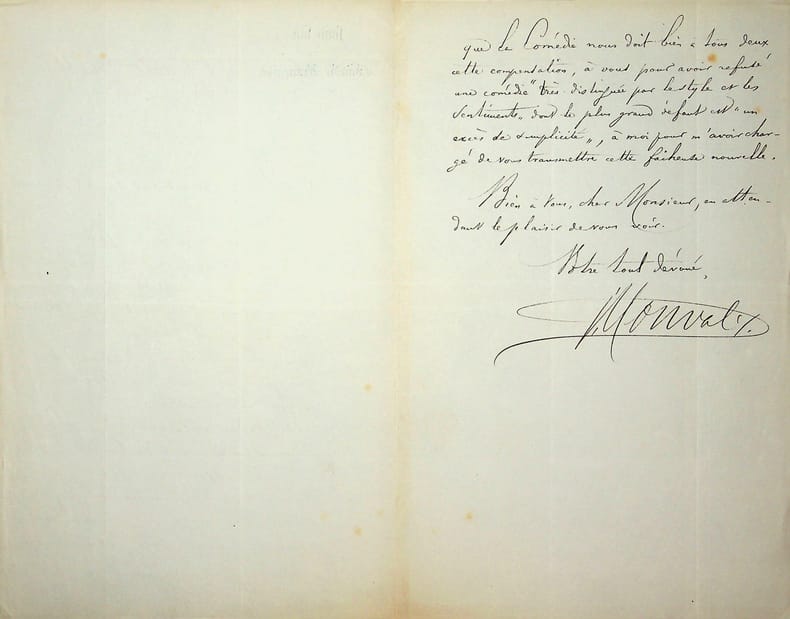 que la Comédie nous doit bien à tous deux
cette compensation, à vous pour avoir refusé
une comédie "très distinguée par le style et les
sentiments" dont le plus grand défaut est "un
excès de simplicité", à moi pour m'avoir char-
gé de vous transmettre cette fâcheuse nouvelle.
Bien à vous, cher Monsieur, en atten-
dant le plaisir de vous voir.
Votre tout dévoué,
Monval